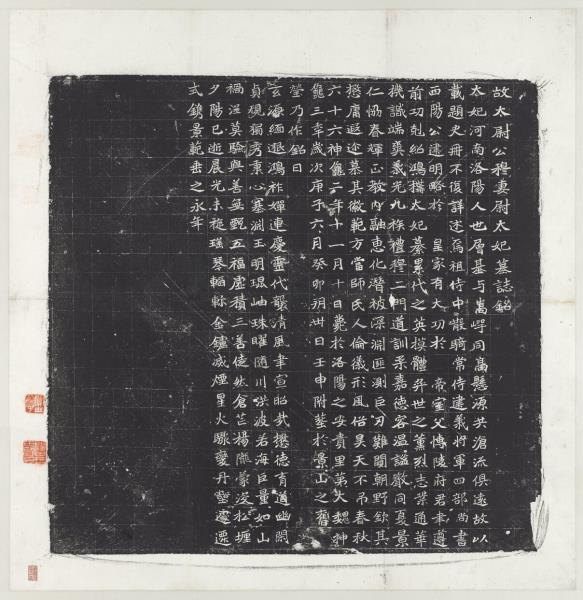 故太尉公穆妻尉太妃墓誌銘
太妃河南洛陽人也層基与嵩㟧同高懸源共滄流俱遠故以
載題史冊不復詳述焉祖侍中散騎常侍建義將軍四部尚書
西陽公達明略於 皇家有大功於 帝室父博陵府君聿遵
前功剋紹鴻檦太妃纂累代之英模體弈世之蕭烈志業通華
機識端爽義光九族禮穆二門道訓柔嘉德容温謐嚴同夏景
仁協春暉正教內融惠化潛被深淵叵測巨刃難闚朝野欽其
懋庸遐迩慕其徽範方當師氏人倫儀形風俗昊天不吊春秋
六十六神龜二年十一月十日薨於洛陽之安貴里第大魏神
龜三年歲次庚子六月癸卯朔卅日壬申附葬於景山之舊
塋乃作銘曰
玄海緬邈鴻祚嬋連慶靈代襲清風聿宣昭哉懋德肯道幽閑
貞規獨秀秉心塞淵王明琨岫珠曜隨川洪波若海巨量如山
禍淫莫驗與善無甄五福虛積三善徒然倉芒楊隴蒙沒松壥
夕陽已逝晨光未旋瑤琴輟軫金鑪滅煙星火驟變丹壑遽遷
式鐫景範垂之永年